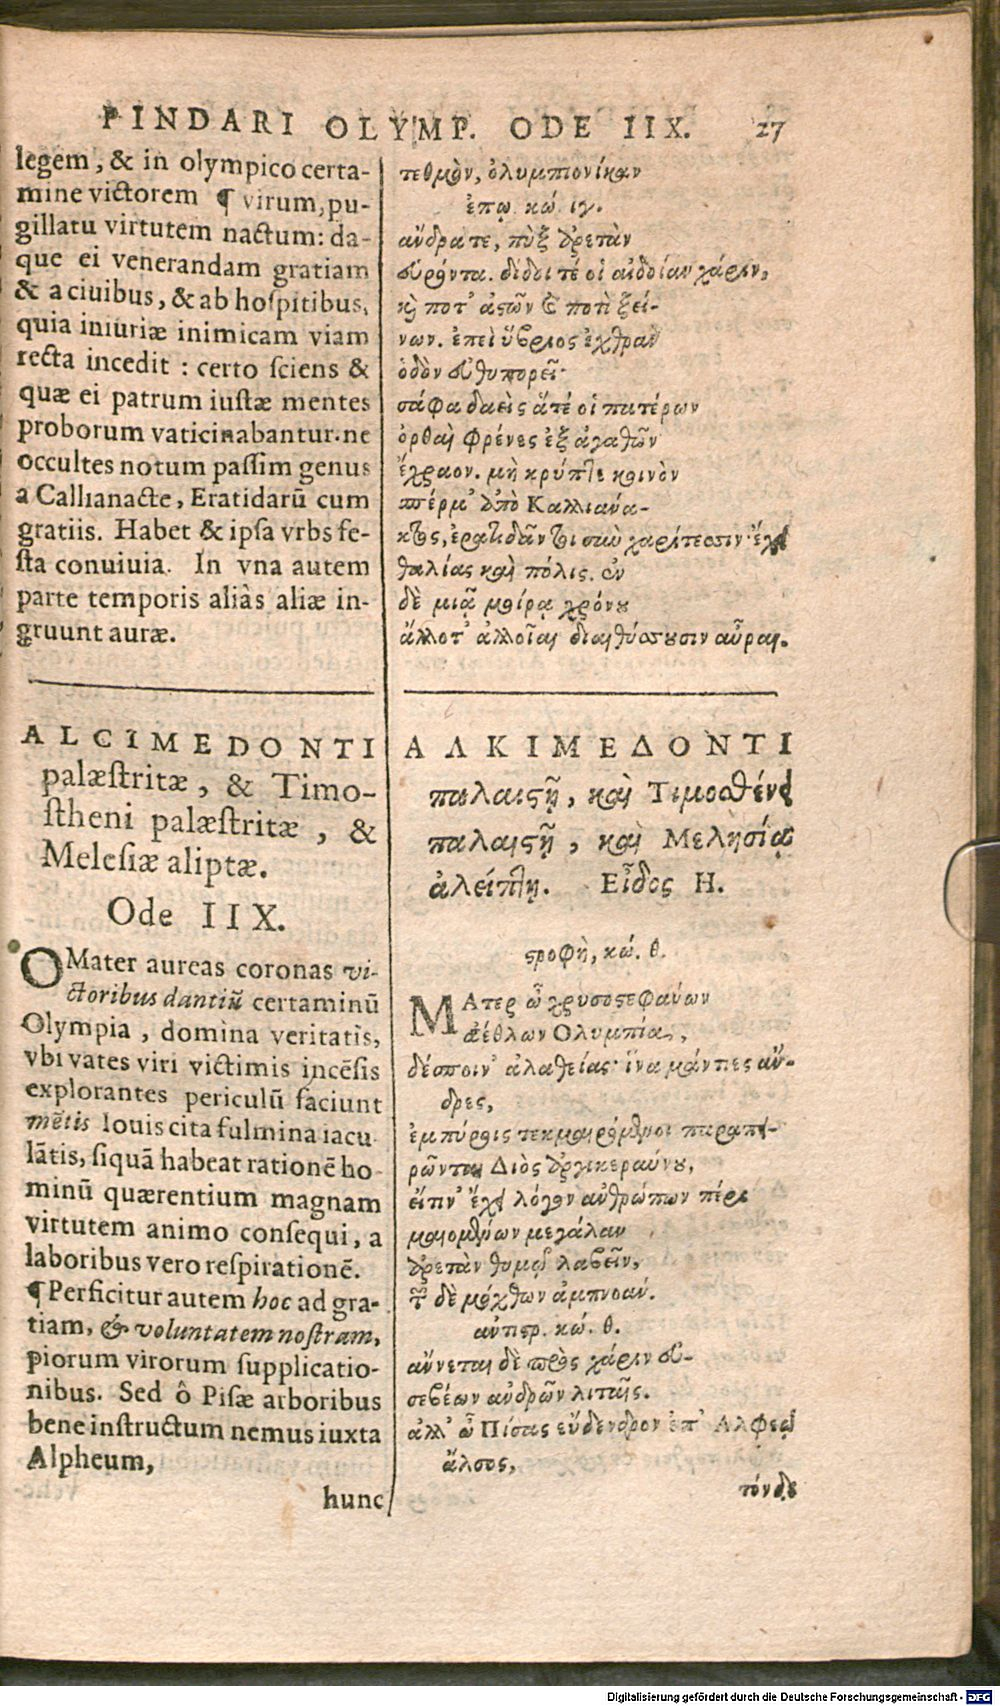 PINDARI OLYMP. ODE IIX. 27
legem, & in olympico certa-
mine victorem ¶ virum, pu-
gillatu virtutem nactum: da-
que ei venerandam gratiam
& a ciuibus, & ab hospitibus,
quia iniuriæ inimicam viam
recta incedit : certo sciens &
quæ ei patrum iustæ mentes
proborum vaticinabantur. ne
occultes notum passim genus
a Callianacte, Eratidarū cum
gratiis. Habet & ipsa vrbs fe-
sta conuiuia. In vna autem
parte temporis aliàs aliæ in-
gruunt auræ.
ALCIMEDONTI
palæstritæ, & Timo-
stheni palæstritæ, &
Melesiæ aliptæ.
Ode IIX.
O Mater aureas coronas vi-
ctoribus dantiū certaminū
Olympia, domina veritatis,
vbi vates viri victimis incēsis
explorantes periculū faciunt
mētis Iouis cita fulmina iacu
lātis, siquā habeat rationē ho-
minū quærentium magnam
virtutem animo consequi, a
laboribus vero respirationē.
¶ Perficitur autem hoc ad gra-
tiam, & voluntatem nostram,
piorum virorum supplicatio-
nibus. Sed ô Pisæ arboribus
bene instructum nemus iuxta
Alpheum,
hunc
τεθμὸν, ὀλυμπιονίκαν
ἐπῳ. κώ. ιγ.
ἄνδρα τε, πὺξ ἀρετὰν
εὑρόντα. δίδοι τέ οἱ αἰδοίαν χάριν,
καὶ ποτ' ἀστῶν καὶ ποτὶ ξεί-
νων. ἐπεὶ ὕβριος ἐχθρὰν
ὁδὸν εὐθυπορεῖ·
σάφα δαεὶς ἅτέ οἱ πατέρων
ὀρθαὶ φρένες ἐξ ἀγαθῶν
ἔχραον. μὴ κρύπτε κοινὸν
σπέρμ' ἀπὸ Καλλιάνα-
κτος, ἐρατιδᾶν τοι σὺν χαρίτεσσιν· ἔχει
θαλίας καὶ πόλις. ἐν
δὲ μιᾷ μοίρᾳ χρόνου
ἄλλοτ' ἀλλοῖαι διαιθύσσουσιν αὖραι.
ΑΛΚΙΜΕΔΟΝΤΙ
παλαιστῇ, καὶ Τιμοσθένει
παλαιστῇ, καὶ Μελησίᾳ
ἀλείπτῃ. Εἶδος Η.
στροφὴ, κώ. θ.
ΜΑτερ ὦ χρυσοστεφάνων
ἀέθλων Ὀλυμπία,
δέσποιν' ἀλαθείας· ἵνα μάντιες ἄν-
δρες,
ἐμπύροις τεκμαιρόμενοι παραπει-
ρῶνται Διὸς ἀργικεραύνου,
εἴτιν' ἔχει λόγον ἀνθρώπων πέρι
μαιομένων μεγάλαν
ἀρετὰν θυμῷ λαβεῖν,
τῶν δὲ μόχθων ἀμπνοάν.
ἀντιστρ. κώ. θ.
ἄνεται δὲ πρὸς χάριν εὐ-
σεβέων ἀνδρῶν λιταῖς.
ἀλλ' ὦ Πίσας εὔδενδρον ἐπ' Ἀλφεῷ
ἄλσος,
τόνδε
Digitalisierung gefördert durch die Deutsche Forschungsgemeinschaft - DFG